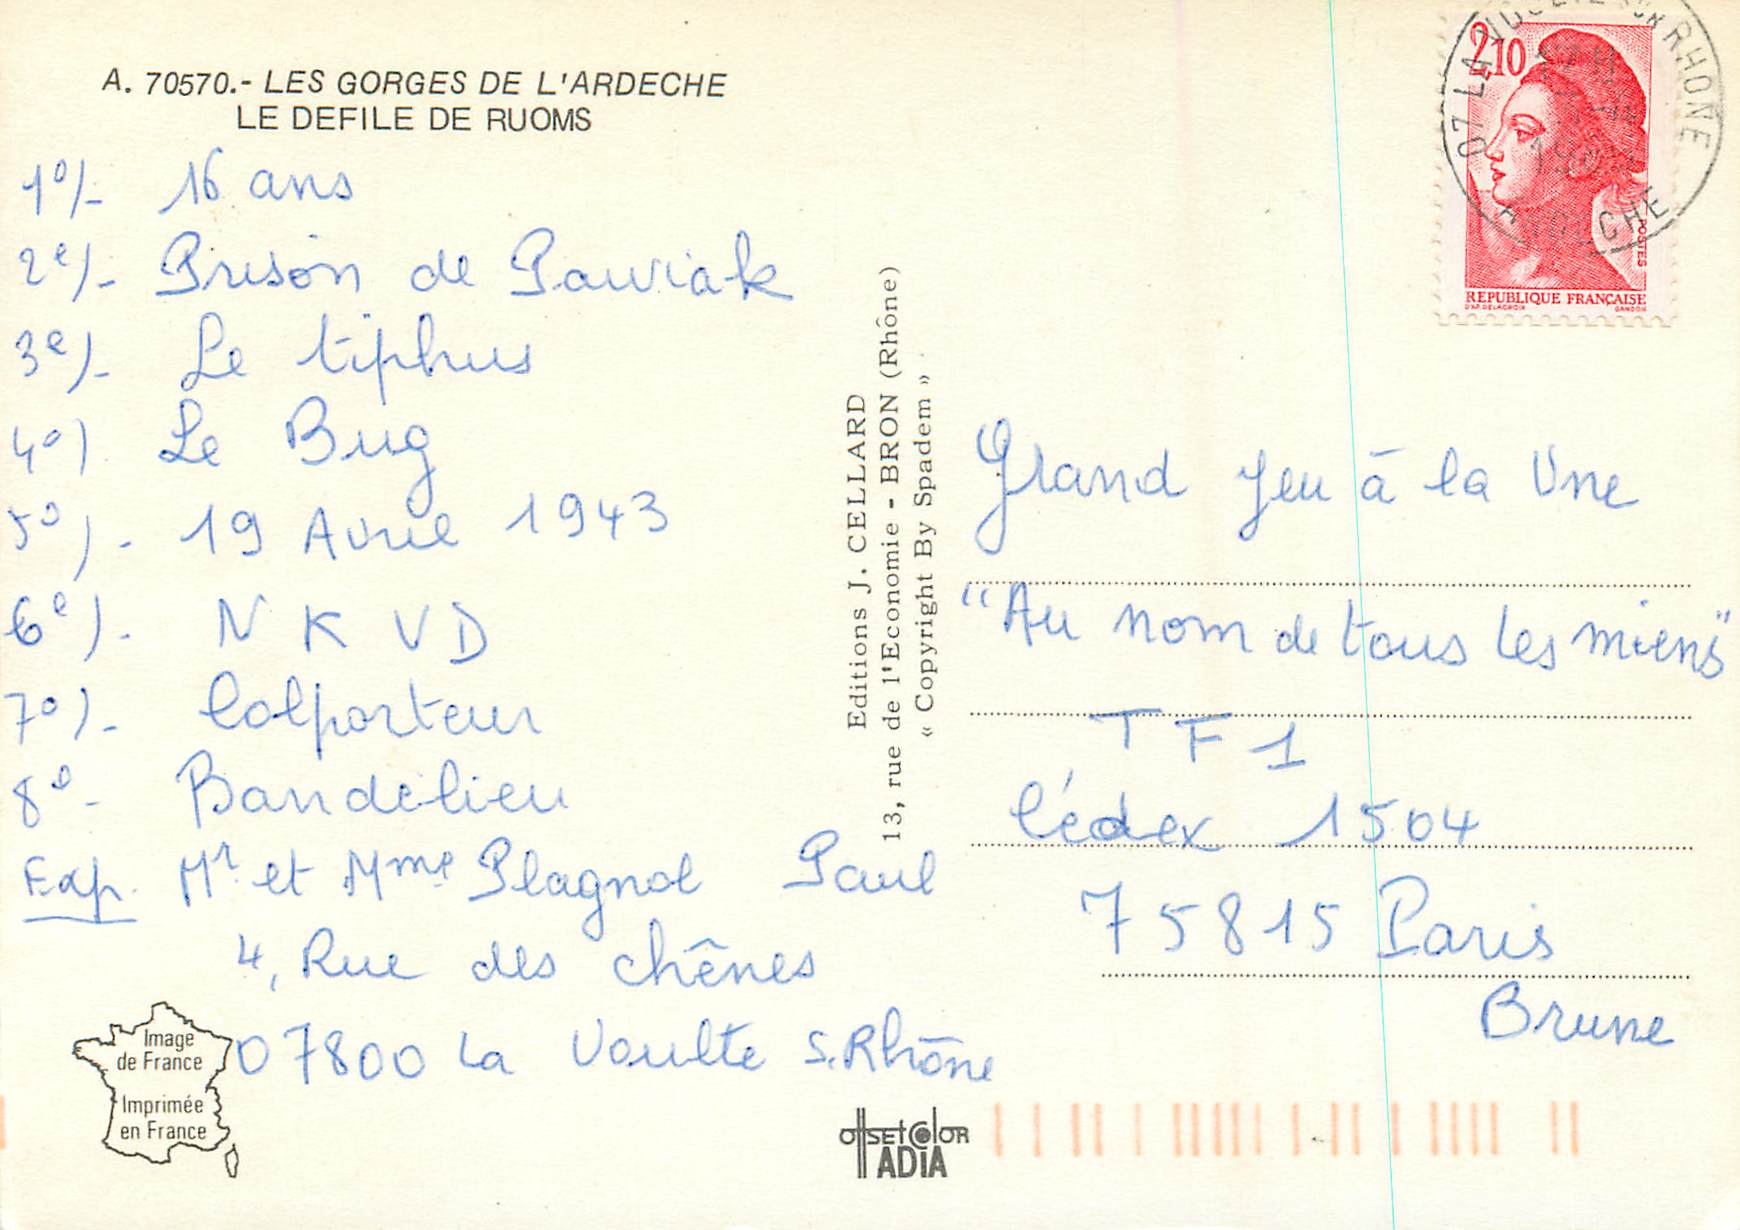 A. 70570.- LES GORGES DE L'ARDECHE
LE DEFILE DE RUOMS
1º/- 16 ans
2e)- Prison de Pawiak
3e)- Le tiphus
4º) Le Bug
5º)- 19 Avril 1943
6e)- N K V D
7º)- Colporteur
8º- Bandelieu
Exp. Mr et Mme Plagnol Paul
4, Rue des chênes
07800 La Voulte s.Rhône
Image
de France
Imprimée
en France
Editions J. CELLARD
13, rue de l'Economie - BRON (Rhône)
« Copyright By Spadem »
offset color
ADIA
2,10
POSTES
REPUBLIQUE FRANÇAISE
D'AP. DELACROIX GANDON
RHONE
Grand jeu à la Une
"Au nom de tous les miens"
T F 1
Cédex 1504
75815 Paris
Brune